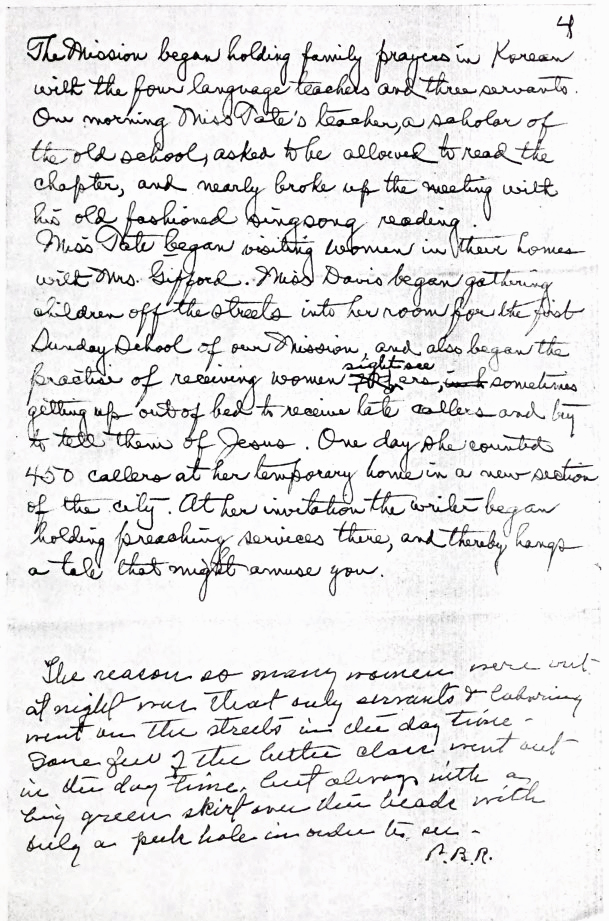 4
The Mission began holding family prayers in Korean
with the four language teachers and three servants.
One morning Miss Tate's teacher, a scholar of
the old school, asked to be allowed to read the
chapter, and nearly broke up the meeting with
his old fashioned singsong reading.
Miss Tate began visiting women in their homes
with Mrs. Gifford. Miss Davis began gathering
children off the streets into her room for the first
Sunday School of our Mission, and also began the
sight see
practise of receiving women ers, sometimes
getting up out of bed to receive late callers and try
to tell them of Jesus. One day she counted
450 callers at her temporary home in a new section
of the city. At her invitation the writer began
holding preaching services there, and thereby hangs
a tale that might amuse you.
The reason so many women were out
at night was that only servants & laboring
went on the streets in the day time -
Some few of the better class went out
in the day time, but always with a
big green skirt over their heads with
only a peek hole in order to see -
P.B.R.